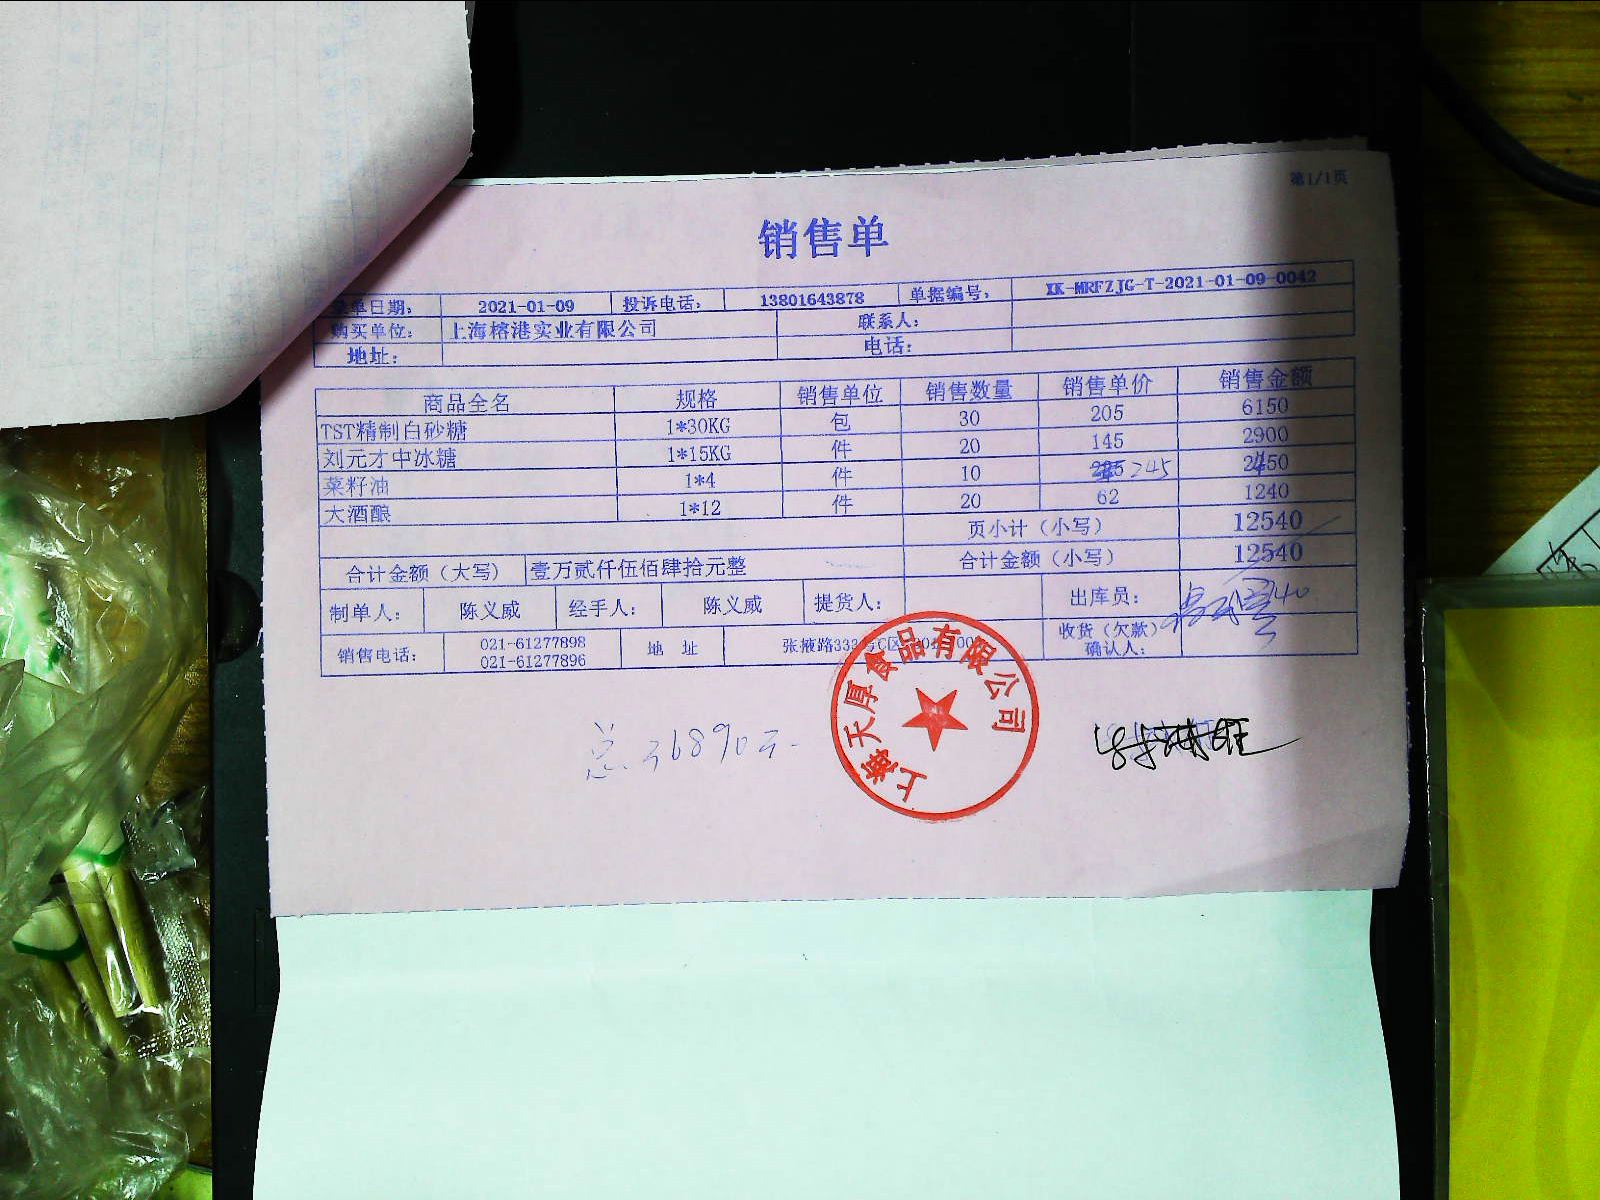 第1/1页
销售单
单日期: 2021-01-09 投诉电话: 13801643878 单据编号: XK-MRFZJG-T-2021-01-09-0042
购买单位: 上海榕港实业有限公司 联系人:
地址: 电话:
商品全名 规格 销售单位 销售数量 销售单价 销售金额
TST精制白砂糖 1*30KG 包 30 205 6150
刘元才中冰糖 1*15KG 件 20 145 2900
菜籽油 1*4 件 10 245 2450
大酒酿 1*12 件 20 62 1240
页小计（小写） 12540
合计金额（大写） 壹万贰仟伍佰肆拾元整 合计金额（小写） 12540
制单人: 陈义威 经手人: 陈义威 提货人: 出库员:
销售电话: 021-61277898 021-61277896 地 址 张掖路333号C区 收货（欠款）确认人:
上海天厚食品有限公司